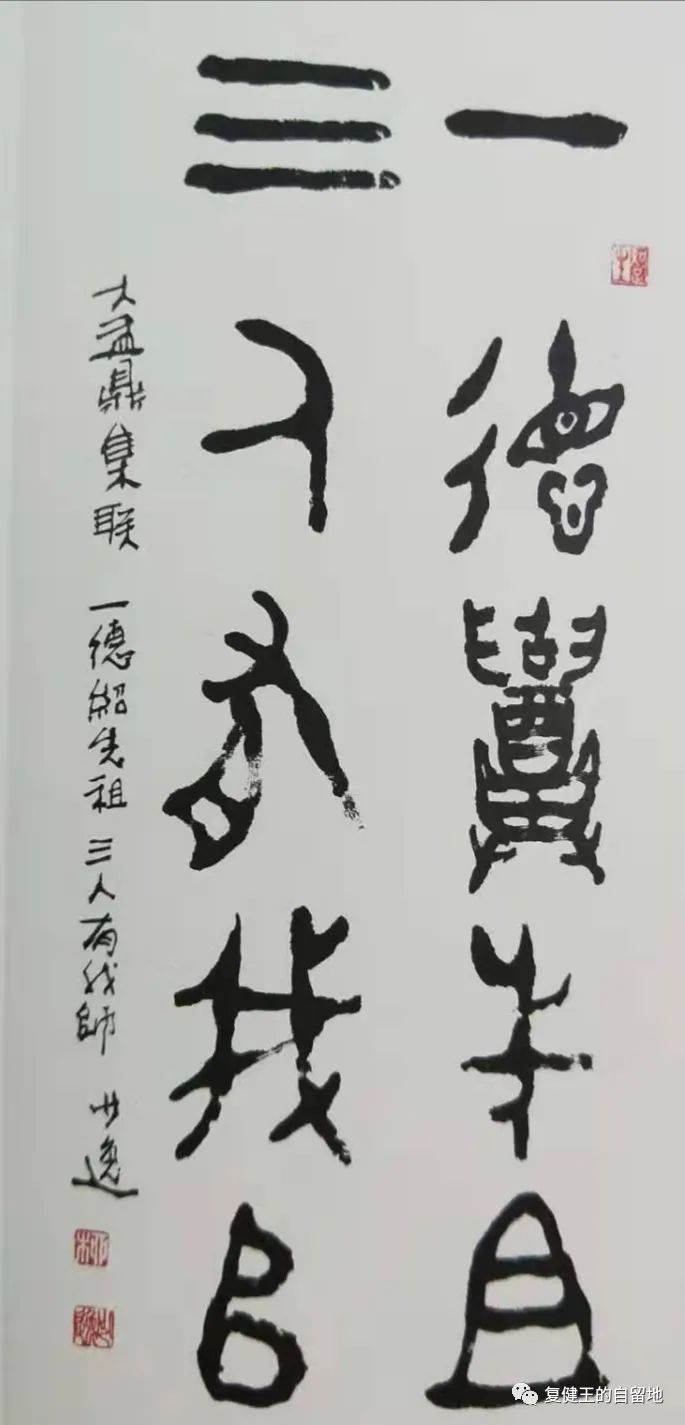 一德紹先祖
三人有我師
大盂鼎集联 一德紹先祖 三人有我師 廿逸
复健王的自留地